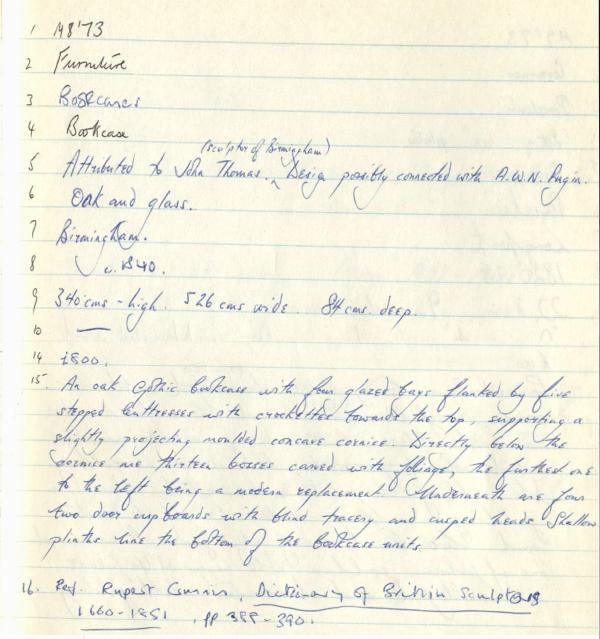 1 M8'73
2 Furniture
3 Bookcases
4 Bookcase
(sculptor of Birmingham)
5 Attributed to John Thomas. ^ Design possibly connected with A.W.N. Pugin.
6 Oak and glass.
7 Birmingham.
8 c. 1840.
9 340 cms - high. 526 cms wide. 84 cms. deep.
10 —
14 £800.
15. An oak Gothic bookcase with four glazed bays flanked by five
stepped buttresses with crockettes towards the top, supporting a
slightly projecting moulded concave cornice. Directly below the
cornice are thirteen bosses carved with foliage, the furthest one
to the left being a modern replacement. Underneath are four
two door cupboards with blind tracery and cusped heads. Shallow
plinths line the bottom of the bookcase units.
16. Ref. Rupert Gunnis, Dictionary of British Sculptors
1660-1851, pp 388-390.